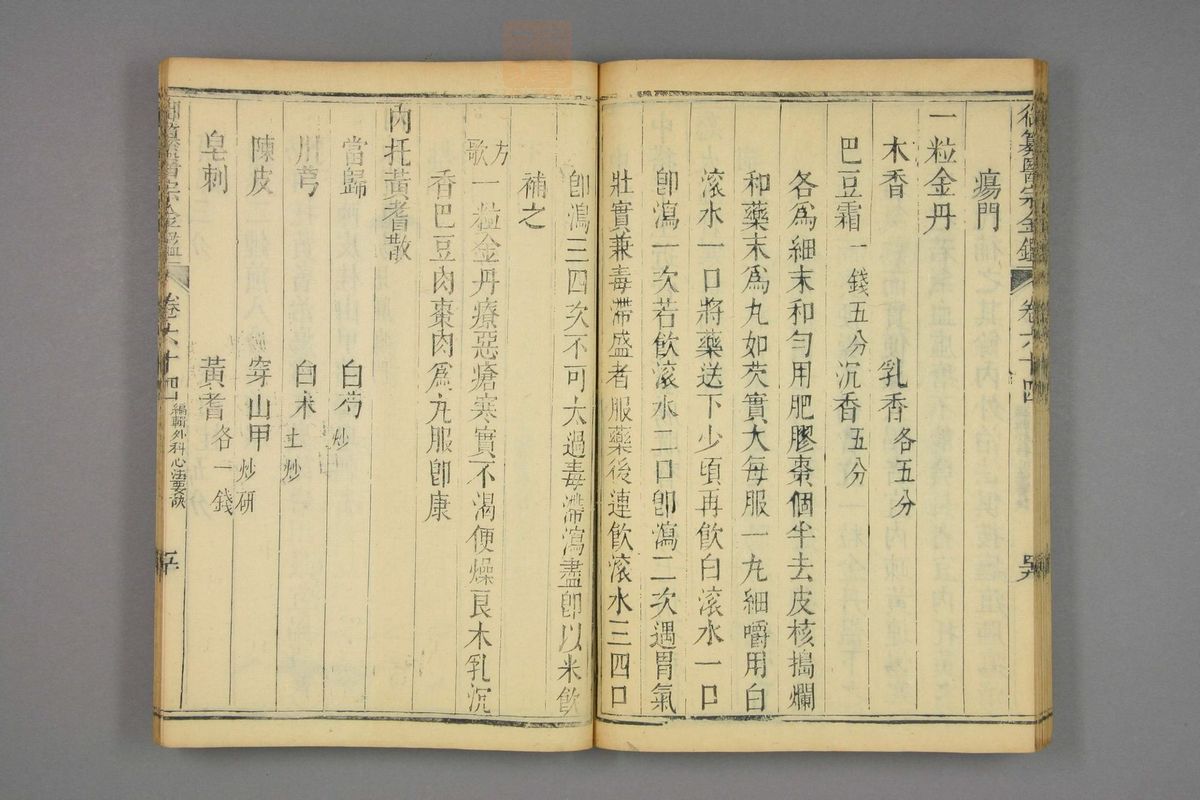 御纂醫宗金鑑
卷六十四
瘍門
一粒金丹
木香 乳香各五分
巴豆霜一錢五分 沉香五分
各為細末和勻用肥膠棗個半去皮核搗爛
和藥末為丸如芡實大每服一丸細嚼用白
滾水一口將藥送下少頃再飲白滾水一口
卽瀉一次若飲滾水二口卽瀉二次遇胃氣
壯實兼毒滯盛者服藥後連飲滾水三四口
卽瀉三四次不可太過毒滯瀉盡卽以米飲
補之
方歌 一粒金丹療惡瘡寒實不渴便燥良木乳沉
香巴豆肉棗肉為丸服卽康
內托黃耆散
當歸 白芍炒
川芎 白朮土炒
陳皮 穿山甲炒研
皂刺 黃耆各一錢
御纂醫宗金鑑
卷六十四
編輯外科心法要訣